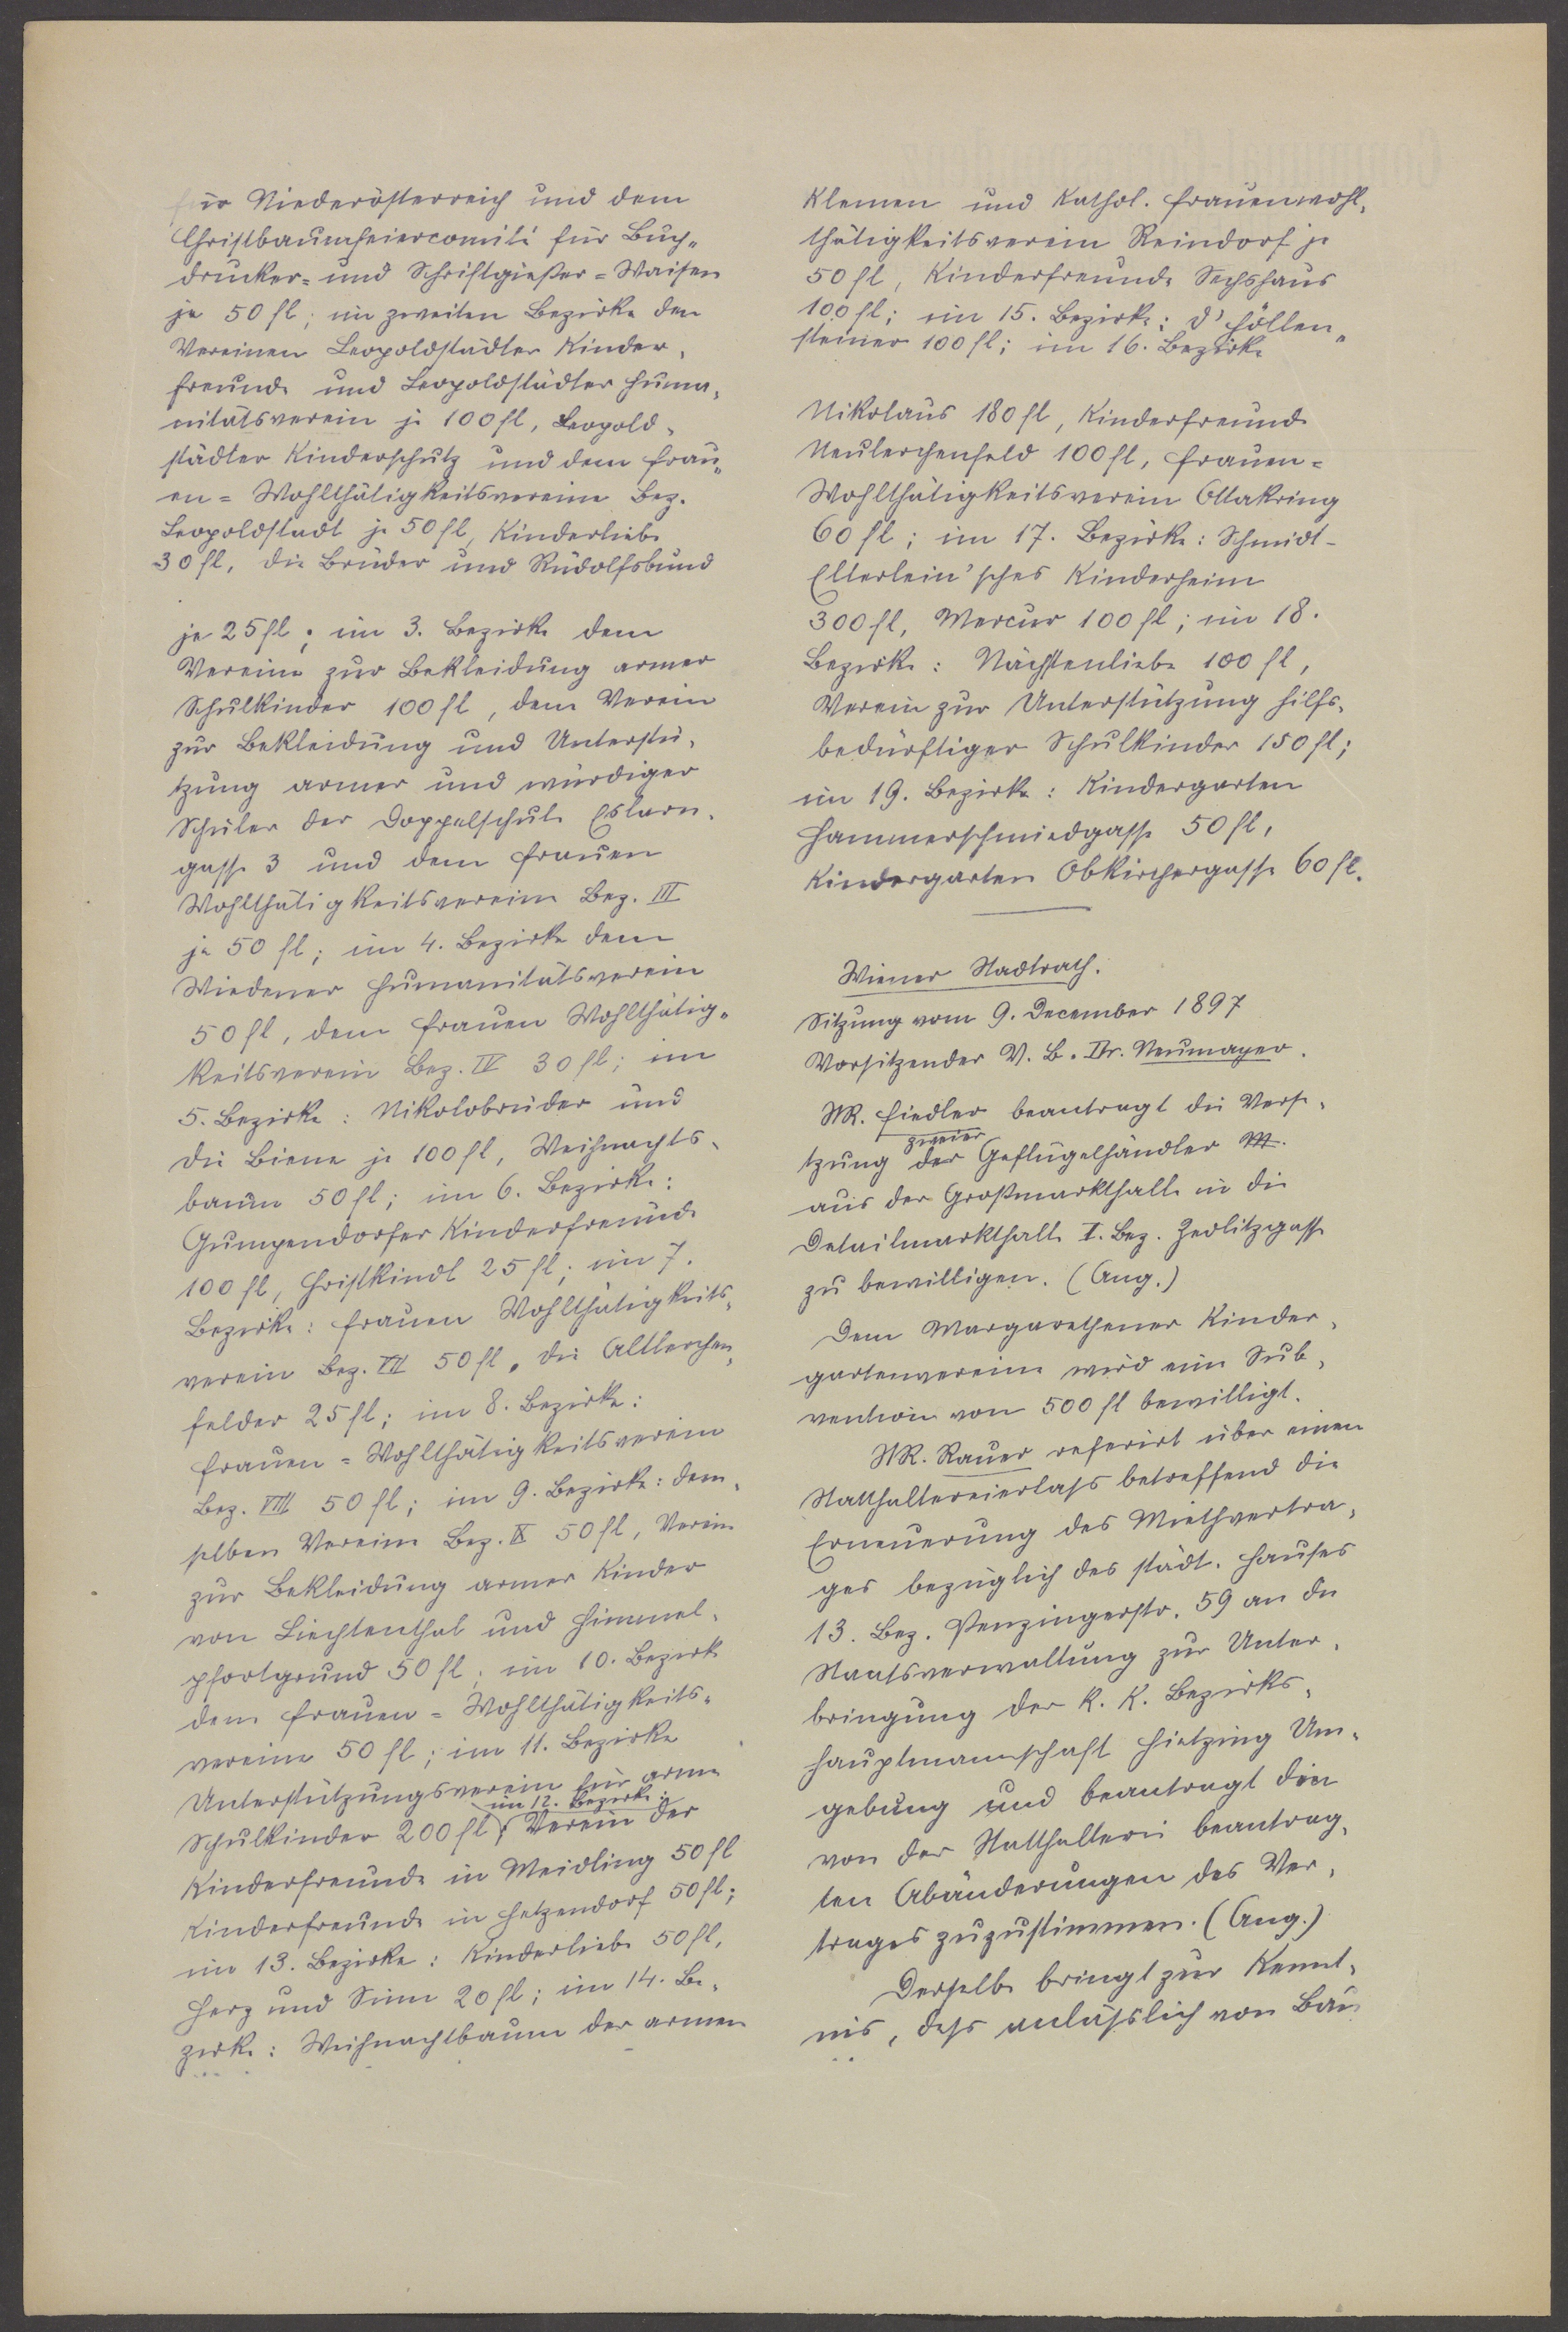 für Niederösterreich und dem
Christbaumfeiercomité für Buch-
drucker- und Schriftgießer-Waisen
je 50 fl; im zweiten Bezirke den
Vereinen Leopoldstädter Kinder-
freunde und Leopoldstädter Huma-
nitätsverein je 100 fl, Leopold-
städter Kinderschutz und dem Frau-
en-Wohlthätigkeitsvereine Bez.
Leopoldstadt je 50 fl, Kinderliebe
30 fl, die Brüder und Rudolfsbund
je 25 fl; im 3. Bezirke dem
Vereine zur Bekleidung armer
Schulkinder 100 fl, dem Verein
zur Bekleidung und Unterstü-
tzung armer und würdiger
Schüler der Doppelschule Eslarn-
gasse 3 und dem Frauen
Wohlthätigkeitsvereine Bez. III
je 50 fl; im 4. Bezirke dem
Wiedener Humanitätsverein
50 fl, dem Frauen Wohlthätig-
keitsverein Bez. IV 30 fl; im
5. Bezirke: Nikolobrüder und
die Biene je 100 fl, Weihnachts-
baum 50 fl; im 6. Bezirke:
Gumpendorfer Kinderfreunde
100 fl, Christkindl 25 fl; im 7.
Bezirke: Frauen Wohlthätigkeits-
verein Bez. VII 50 fl, die Altlerchen-
felder 25 fl; im 8. Bezirke:
Frauen-Wohlthätigkeitsverein
Bez. VIII 50 fl; im 9. Bezirke: dem-
selben Vereine Bez. IX 50 fl, Verein
zur Bekleidung armer Kinder
von Liechtenthal und Himmel-
pfortgrund 50 fl; im 10. Bezirk
dem Frauen-Wohlthätigkeits-
vereine 50 fl; im 11. Bezirke
Unterstützungsverein für arme
im 12. Bezirke:
Schulkinder 200 fl; Verein der
Kinderfreunde in Meidling 50 fl
Kinderfreunde in Hetzendorf 50 fl;
im 13. Bezirke: Kinderliebe 50 fl,
Herz und Sinn 20 fl; im 14. Be-
zirke: Weihnachtbaum der armen
Kleinen und Kathol. Frauenwohl-
thätigkeitsverein Reindorf je
50 fl, Kinderfreunde Sechshaus
100 fl; im 15. Bezirke: D' Höllen-
steiner 100 fl; im 16. Bezirke
Nikolaus 180 fl, Kinderfreunde
Neulerchenfeld 100 fl, Frauen-
Wohlthätigkeitsverein Ottakring
60 fl; im 17. Bezirke: Schmidt-
Ellerlein'sches Kinderheim
300 fl, Mercur 100 fl; im 18.
Bezirke: Nächstenliebe 100 fl,
Verein zur Unterstützung hilfs-
bedürftiger Schulkinder 150 fl;
im 19. Bezirke: Kindergarten
Hammerschmiedgasse 50 fl,
Kindergarten Obkirchergasse 60 fl.
Wiener Stadtrath.
Sitzung vom 9. December 1897
Vorsitzender V. B. Dr. Neumayer.
StR. Fiedler beantragt die Verse-
zweier
tzung der Geflügelhändler
aus der Großmarkthalle in die
Detailmarkthalle I. Bez. Zedlitzgasse
zu bewilligen. (Ang.)
Dem Margarethener Kinder-
gartenvereine wird eine Sub-
vention von 500 fl bewilligt.
StR. Rauer referirt über einen
Statthaltereierlass betreffend die
Erneuerung des Miethvertra-
ges bezüglich des städt. Hauses
13. Bez. Penzingerstr. 59 an die
Staatsverwaltung zur Unter-
bringung der k. k. Bezirks-
hauptmannschaft Hietzing Um-
gebung und beantragt den
von der Statthalterei beantrag-
ten Abänderungen des Ver-
trages zuzustimmen. (Ang.)
Derselbe bringt zur Kennt-
nis, dass anlässlich von Bau